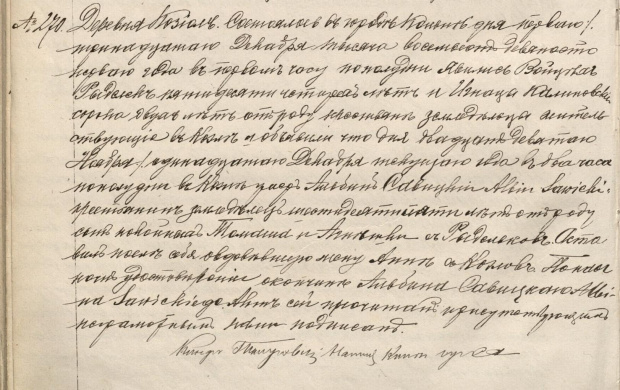 № 270. Деревня Козіолъ. Состоялось въ городѣ Кольнѣ дня перваго/
тринадцатаго Декабря тысяча восемьсотъ девяносто
перваго года въ первомъ часу пополудни явились Войцехъ
Рыдолекъ пятидесяти четырехъ лѣтъ и Игнацъ Калиновскій
сорока двухъ лѣтъ отъ роду крестьяне земледѣльцы житель
ствующіе въ и объявили что дня двадцать девятаго
Ноября/одинадцатаго Декабря текущаго года въ два часа
пополудни въ умеръ Альбинъ Савицкій Albin Sawicki
крестьянинъ земледѣлецъ шестидесяти пяти лѣтъ отъ роду
сынъ покойныхъ Томаша и Агнешки съ Рыдолековъ. Оста
вилъ послѣ себя овдовѣвшую жену Анну съ Козловъ. По наоч
номъ удостовѣреніи о кончинѣ Альбина Савицкаго Albi-
na Sawickiego Актъ сей прочитанъ присутствующимъ
неграмотнымъ нами подписанъ.
Ксендзъ